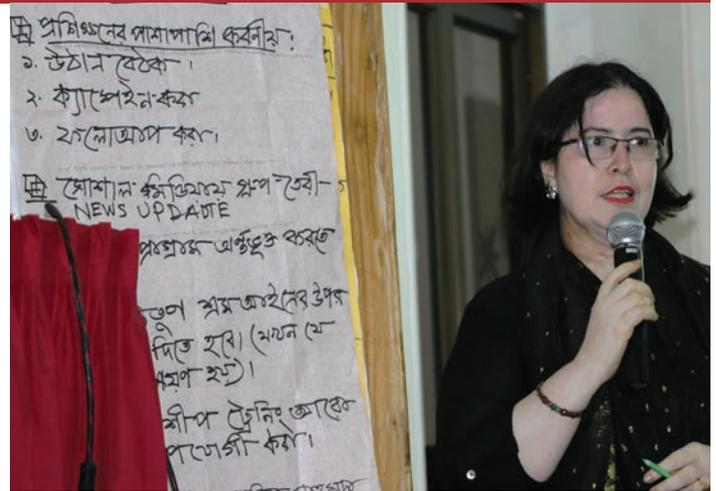 প্রশিক্ষনের পাশাপাশি করনীয়:
১. উঠান বৈঠক।
২. ক্যাম্পেইন করা
৩. ফলোআপ করা।
সোশাল মিডিয়ায় গ্রুপ তৈরী-
NEWS UPDATE
অর্ন্তভূক্ত করতে
শ্রম আইনের উপর
দিতে হবে। (যখন যে
হয়)।
শীপ ট্রেনিং আরো
করা।